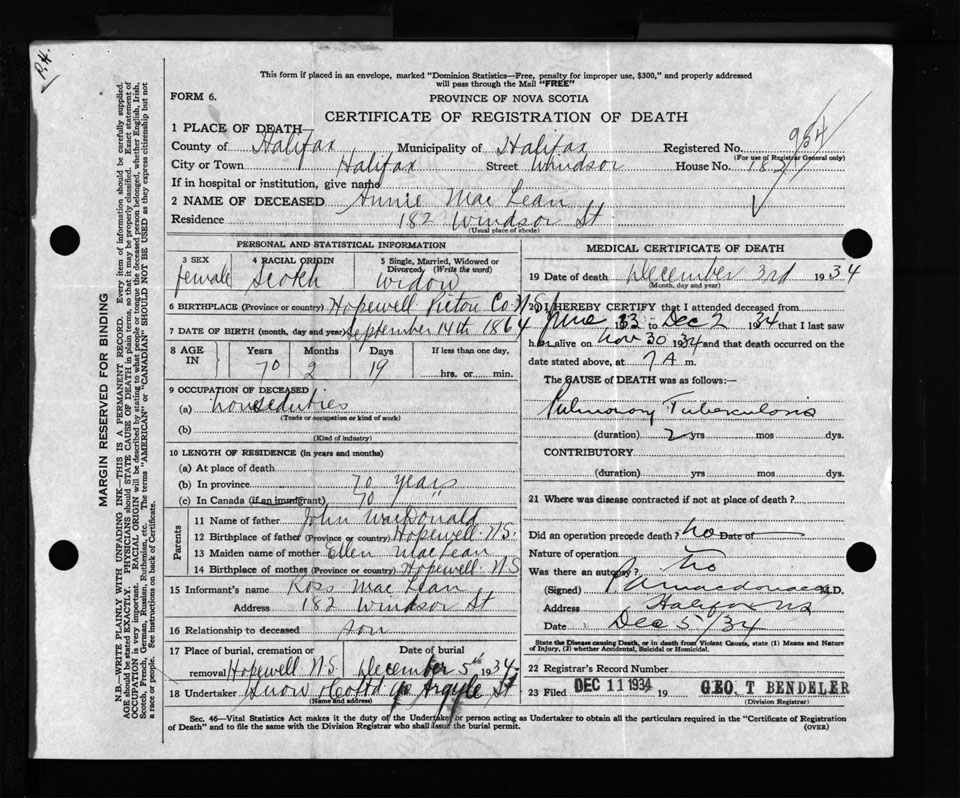 P.H.
This form if placed in an envelope, marked "Dominion Statistics—Free, penalty for improper use, $300," and properly addressed
will pass through the Mail "FREE"
FORM 6.
PROVINCE OF NOVA SCOTIA
CERTIFICATE OF REGISTRATION OF DEATH
1 PLACE OF DEATH—
County of Halifax Municipality of Halifax Registered No. 954
(For use of Registrar General only)
City or Town Halifax Street Windsor House No. 182
If in hospital or institution, give name
2 NAME OF DECEASED Annie MacLean
Residence 182 Windsor St
(Usual place of abode)
PERSONAL AND STATISTICAL INFORMATION
3 SEX 4 RACIAL ORIGIN 5 Single, Married, Widowed or Divorced, (Write the word)
female Scotch widow
6 BIRTHPLACE (Province or country) Hopewell, Pictou Co N.S.
7 DATE OF BIRTH (month, day and year) September 14th 1864
8 AGE IN Years Months Days If less than one day,
70 2 19 hrs. or min.
9 OCCUPATION OF DECEASED
(a) house duties
(Trade or occupation or kind of work)
(b)
(Kind of industry)
10 LENGTH OF RESIDENCE (In years and months)
(a) At place of death
(b) In province 70 years
(c) In Canada (if an immigrant) 70 "
Parents
11 Name of father John MacDonald
12 Birthplace of father (Province or country) Hopewell N.S.
13 Maiden name of mother Ellen MacLean
14 Birthplace of mother (Province or country) Hopewell N.S
15 Informant's name Ross MacLean
Address 182 Windsor St
16 Relationship to deceased son
17 Place of burial, cremation or removal Hopewell N.S. Date of burial December 5th 1934
18 Undertaker Snow & Co Ltd Argyle St
(Name and address)
MEDICAL CERTIFICATE OF DEATH
19 Date of death December 3rd 1934
(Month, day and year)
20 I HEREBY CERTIFY that I attended deceased from
June 33 to Dec 2 1934 that I last saw
her alive on Nov 30 1934 and that death occurred on the
date stated above, at 7 A m.
The CAUSE of DEATH was as follows:—
Pulmonary Tuberculosis
(duration) 2 yrs mos dys.
CONTRIBUTORY
(duration) yrs mos dys.
21 Where was disease contracted if not at place of death?
Did an operation precede death? no Date of
Nature of operation
Was there an autopsy? No
(Signed) M.D.
Address Halifax NS
Date Dec 5/34
State the Disease causing Death, or in death from Violent Causes, state (1) Means and Nature
of Injury, (2) whether Accidental, Suicidal or Homicidal.
22 Registrar's Record Number
23 Filed DEC 11 1934 19 GEO. T BENDELER
(Division Registrar)
Sec. 46—Vital Statistics Act makes it the duty of the Undertaker or person acting as Undertaker to obtain all the particulars required in the "Certificate of Registration
of Death" and to file the same with the Division Registrar who shall issue the burial permit. (OVER)
MARGIN RESERVED FOR BINDING
N.B.—WRITE PLAINLY WITH UNFADING INK—THIS IS A PERMANENT RECORD. Every item of information should be carefully supplied.
AGE should be stated EXACTLY. PHYSICIANS should STATE CAUSE OF DEATH in plain terms, so that it may be properly classified. Exact statement of
OCCUPATION is very important. RACIAL ORIGIN will be described by stating to what people or tongue the deceased person belonged, whether English, Irish,
Scotch, French, German, Russian, Ruthenian, etc. The terms "AMERICAN" or "CANADIAN" SHOULD NOT BE USED as they express citizenship but not
a race or people. See instructions on back of Certificate.